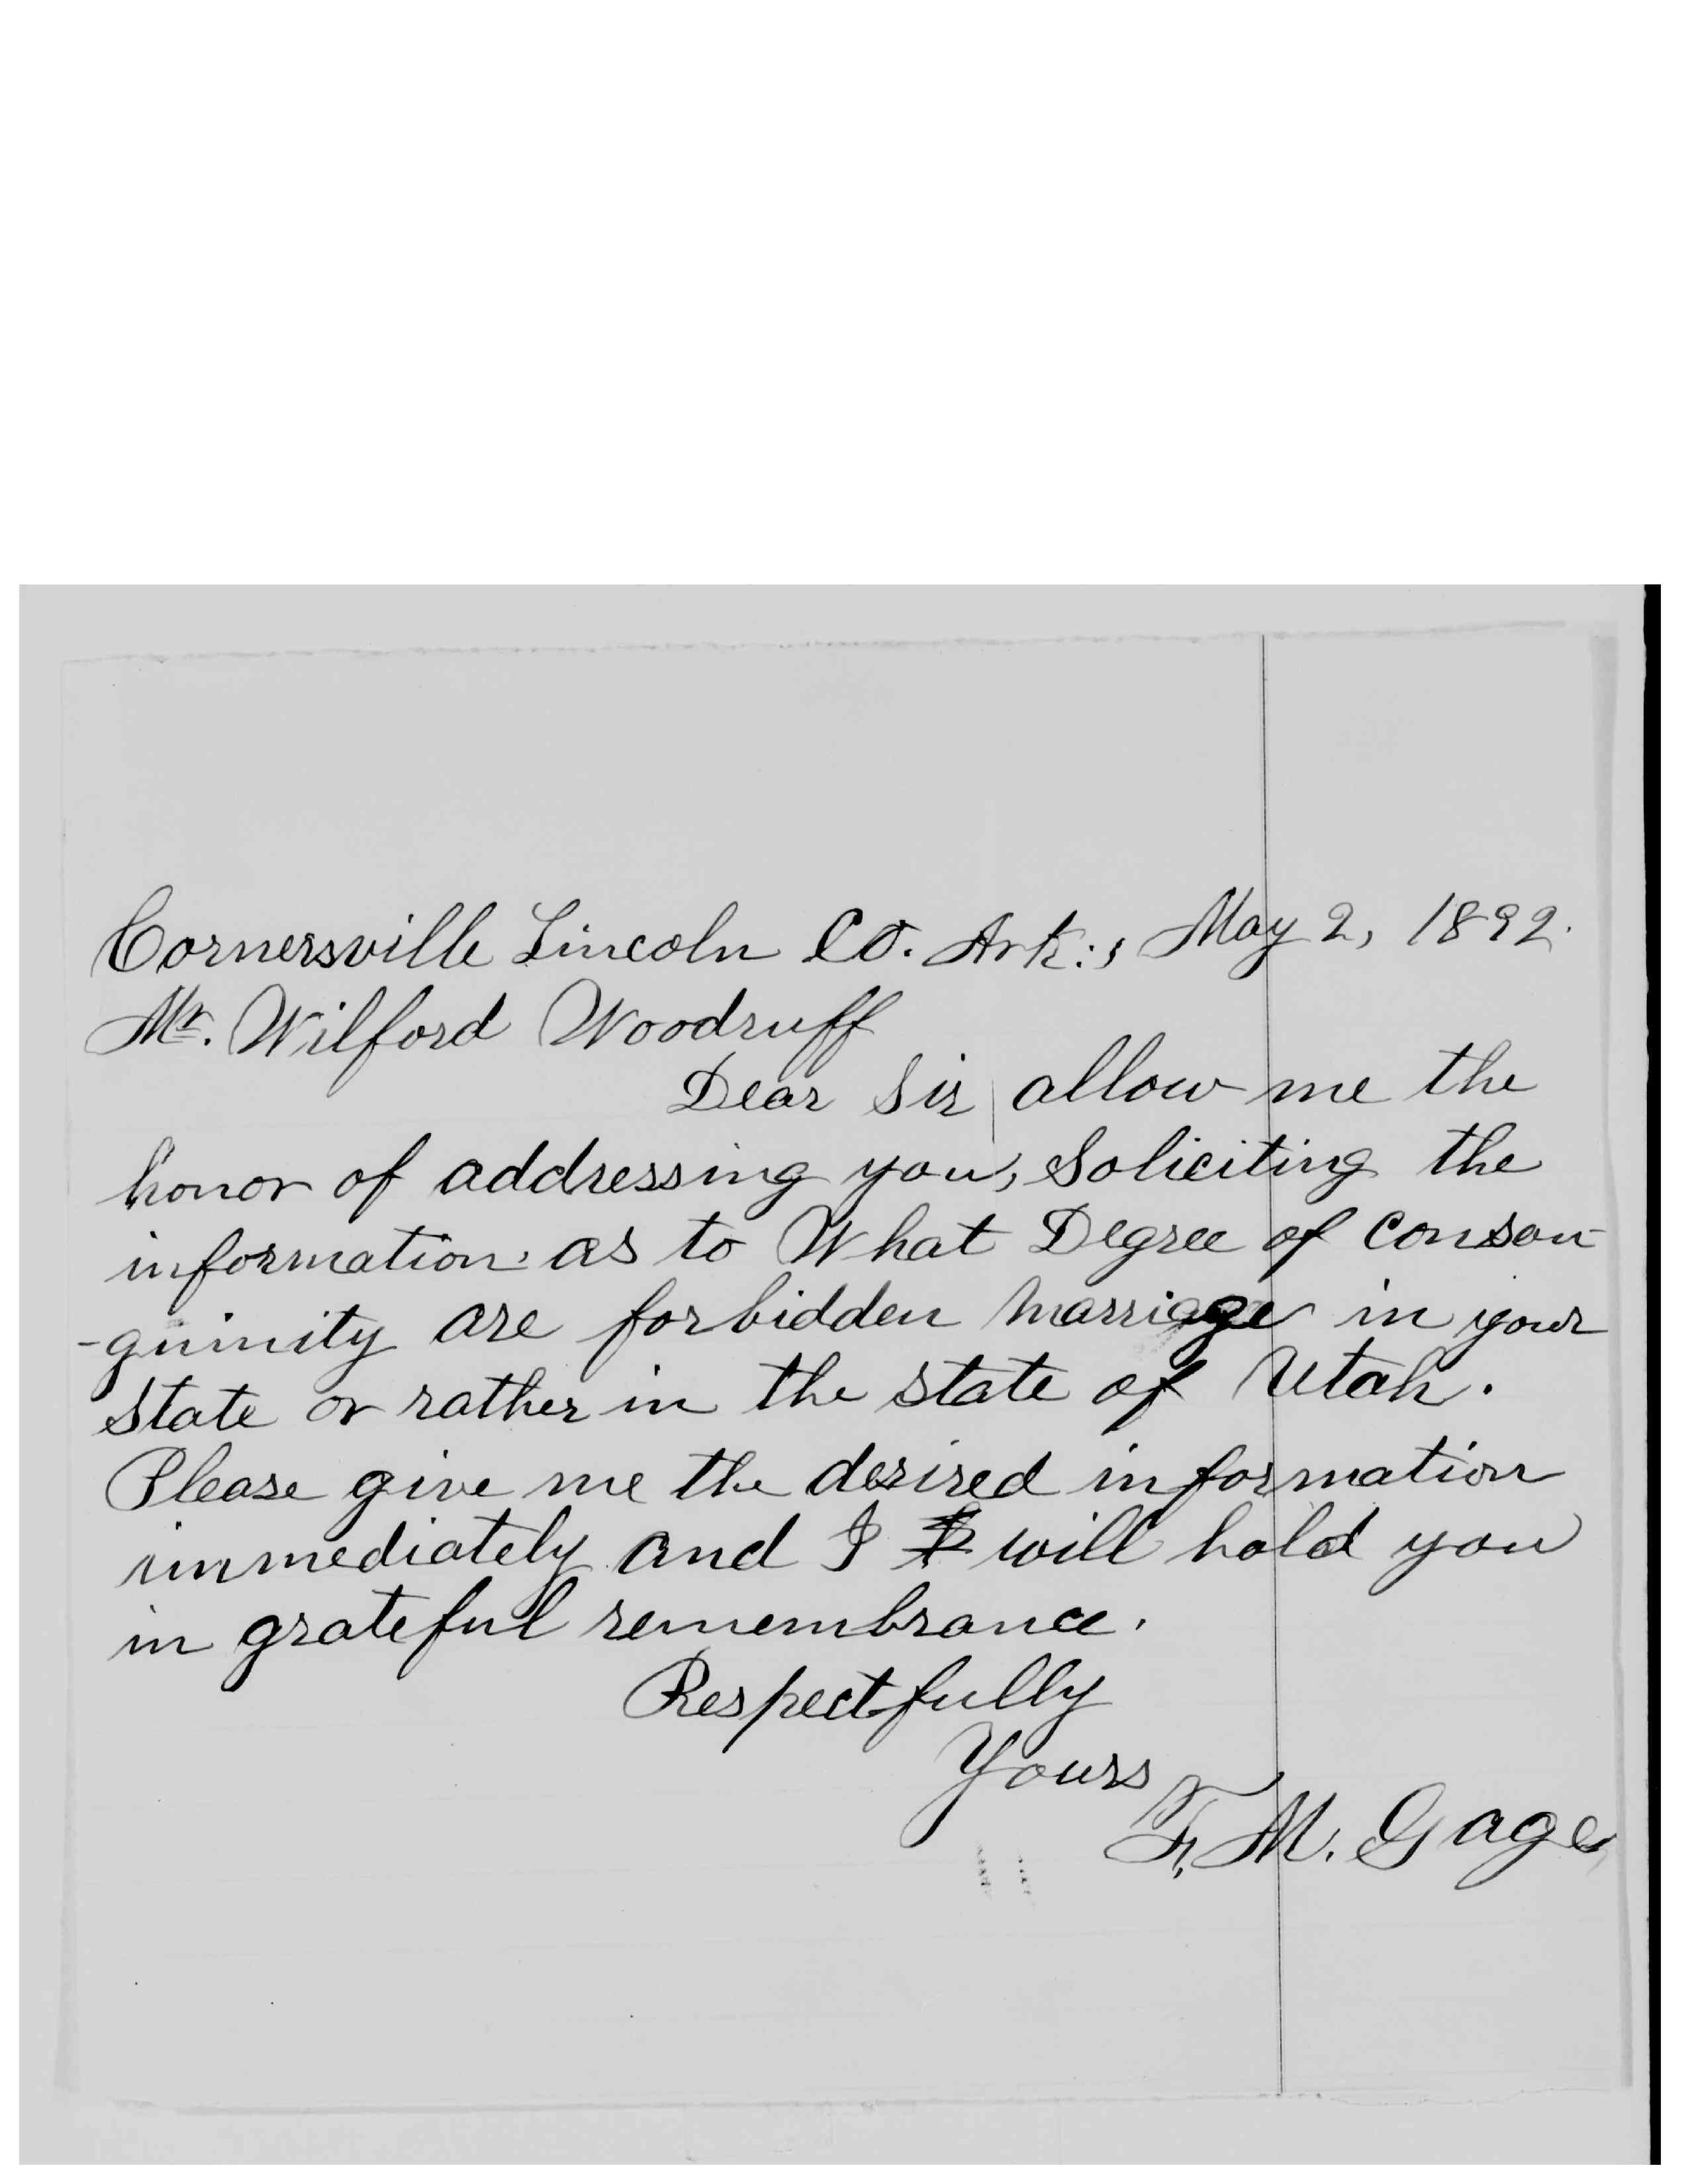 Cornersville Lincoln Co. Ark:, May 2, 1892.
Mr. Wilford Woodruff
Dear Sir allow me the
honor of addressing you, soliciting the
information as to What Degree of consan-
-guinity are forbidden marriage in your
state or rather in the state of Utah.
Please give me the desired information
immediately and I will hold you
in grateful remembrance.
Respectfully
Yours
F. M. Gage